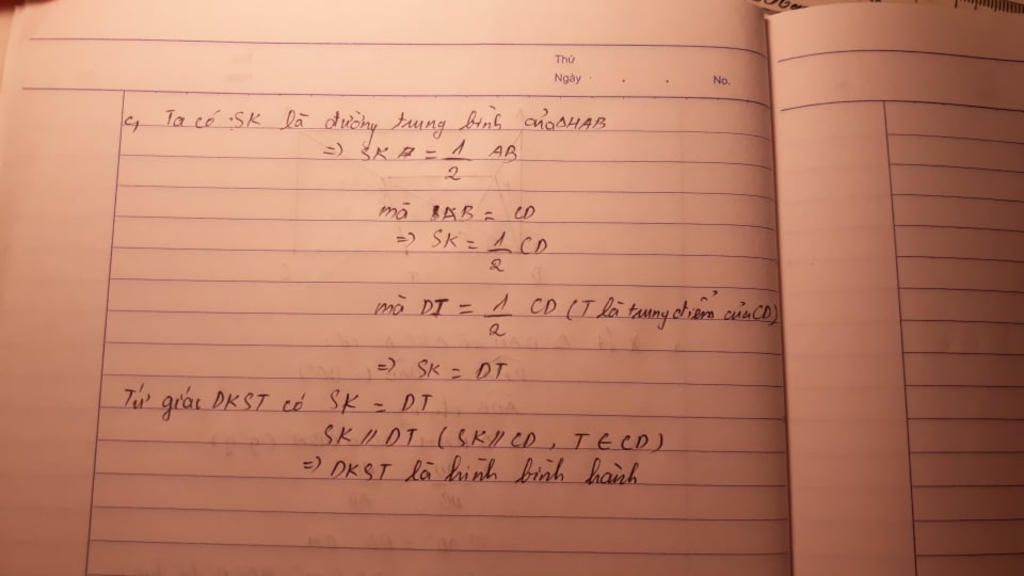 Thứ
Ngày . . . No.
c, Ta có SK là đường trung bình của ΔHAB
=> SK = 1/2 AB
mà AB = CD
=> SK = 1/2 CD
mà DT = 1/2 CD (T là trung điểm của CD)
=> SK = DT
Tứ giác DKST có SK = DT
SK // DT (SK // CD, T ∈ CD)
=> DKST là hình bình hành